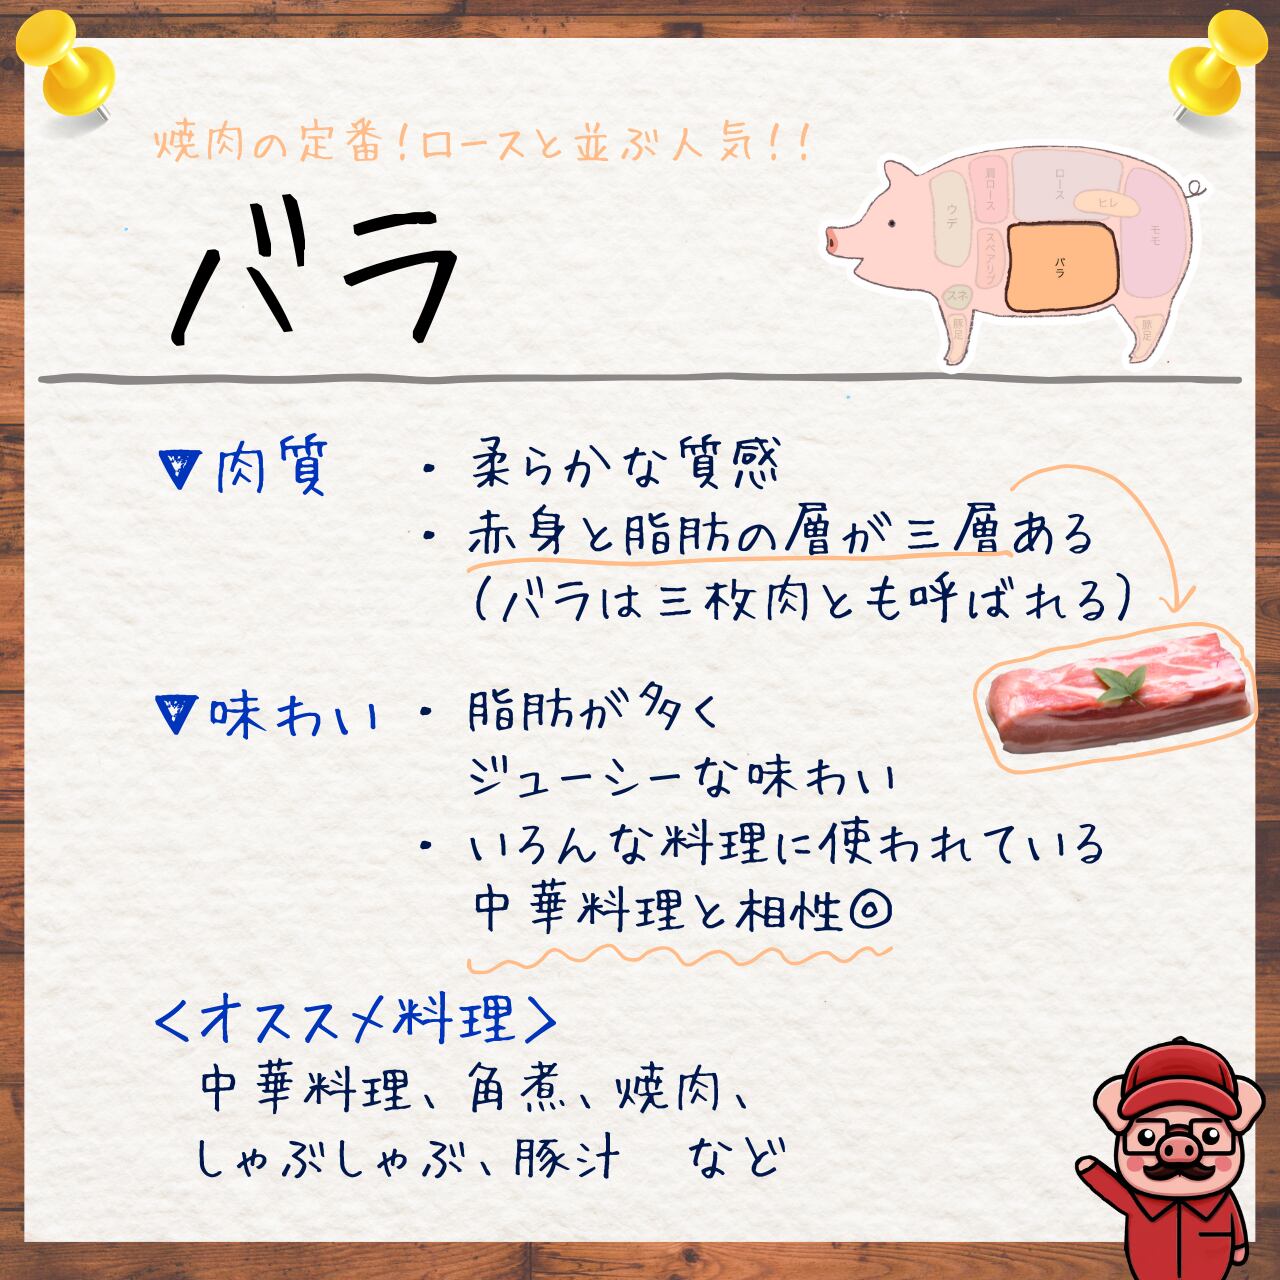 焼肉の定番!ロースと並ぶ人気!!
バラ
ウデ
肩ロース
ロース
ヒレ
モモ
スペアリブ
バラ
スネ
豚足
豚足
▼肉質
・柔らかな質感
・赤身と脂肪の層が三層ある
(バラは三枚肉とも呼ばれる)
▼味わい
・脂肪が多く
ジューシーな味わい
・いろんな料理に使われている
中華料理と相性◎
<オススメ料理>
中華料理、角煮、焼肉、
しゃぶしゃぶ、豚汁 など